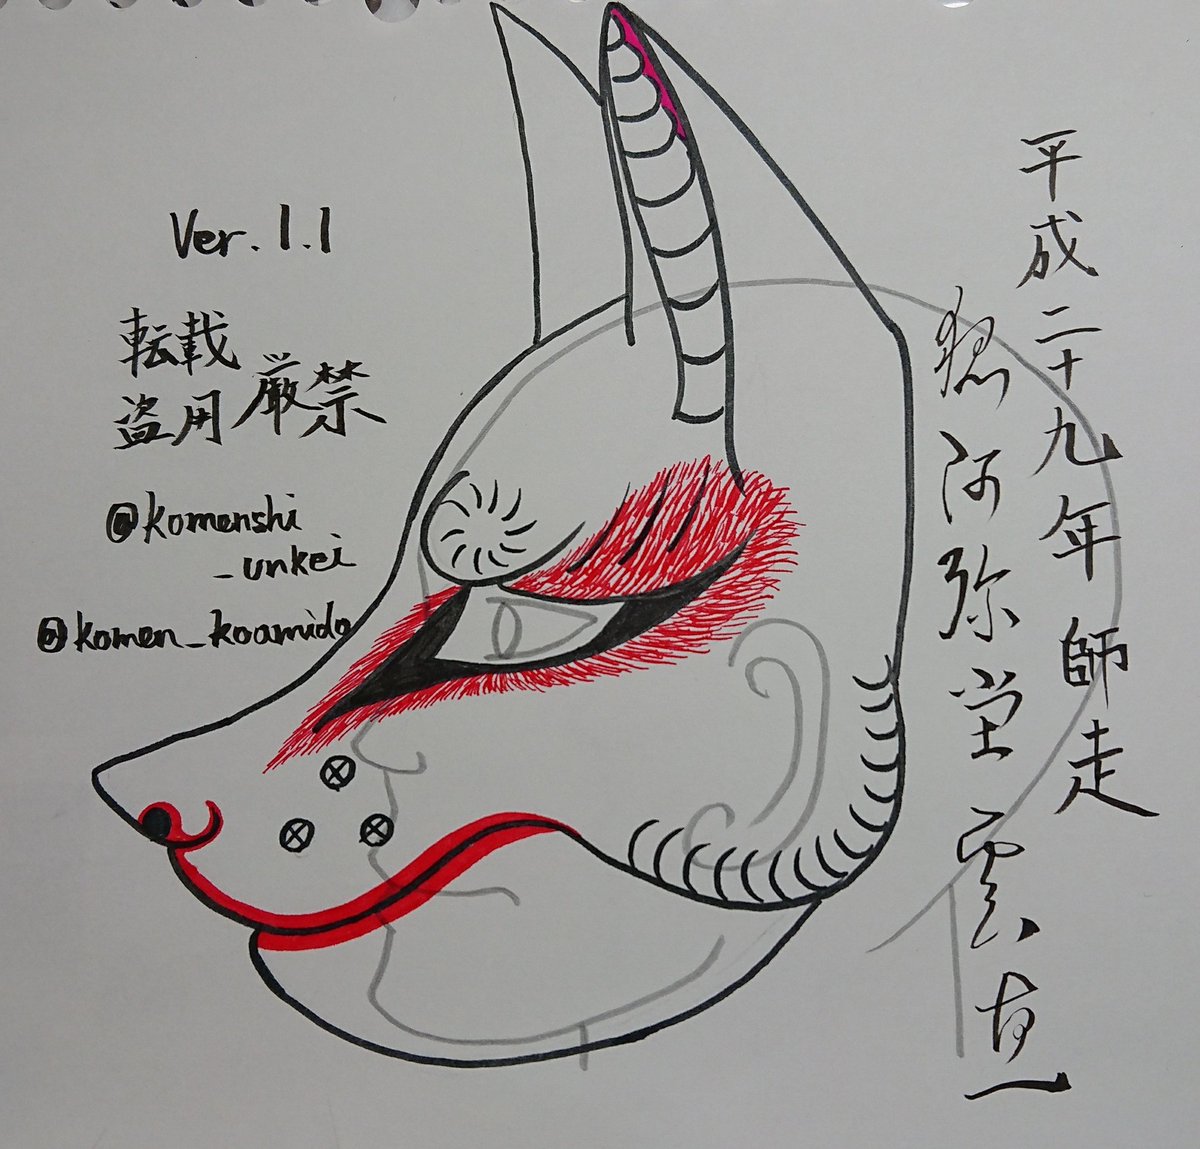 Ver. 1.1
転載
盗用
厳禁
@komenshi
_unkei
@komen_koamido
平成二十九年 師走
狐阿弥堂 雲恵